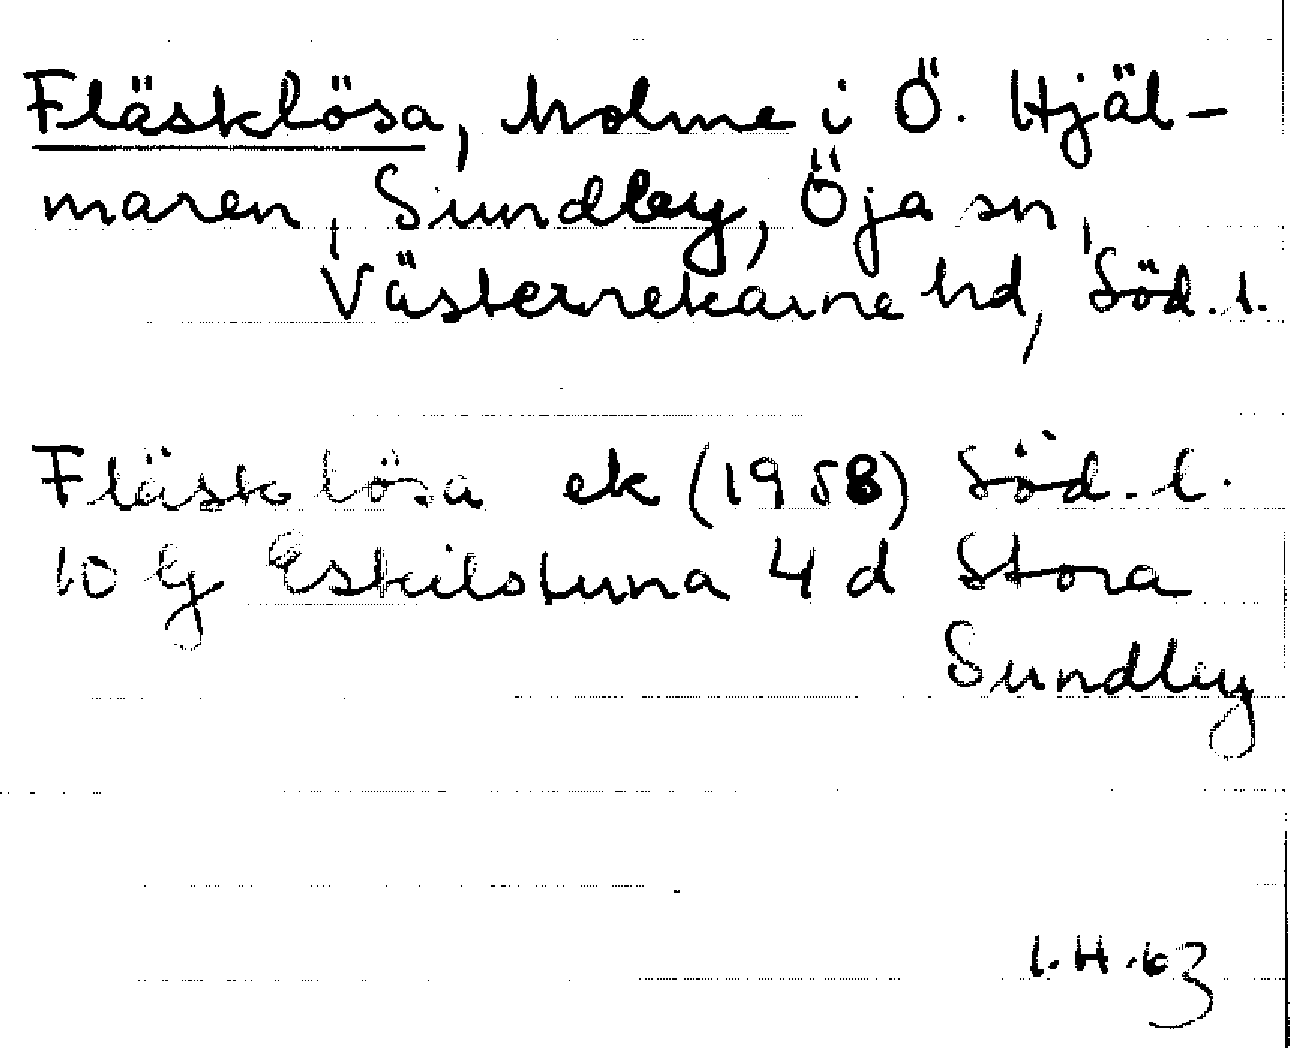 Fläsklösa, holme i Ö. Hjäl-
maren, Sundby, Öja sn,
Västerrekarne hd, Söd.l.
Fläsklösa ek (1958) Söd.l.
10 G Eskilstuna 4 d Stora
Sundby
I.H.63